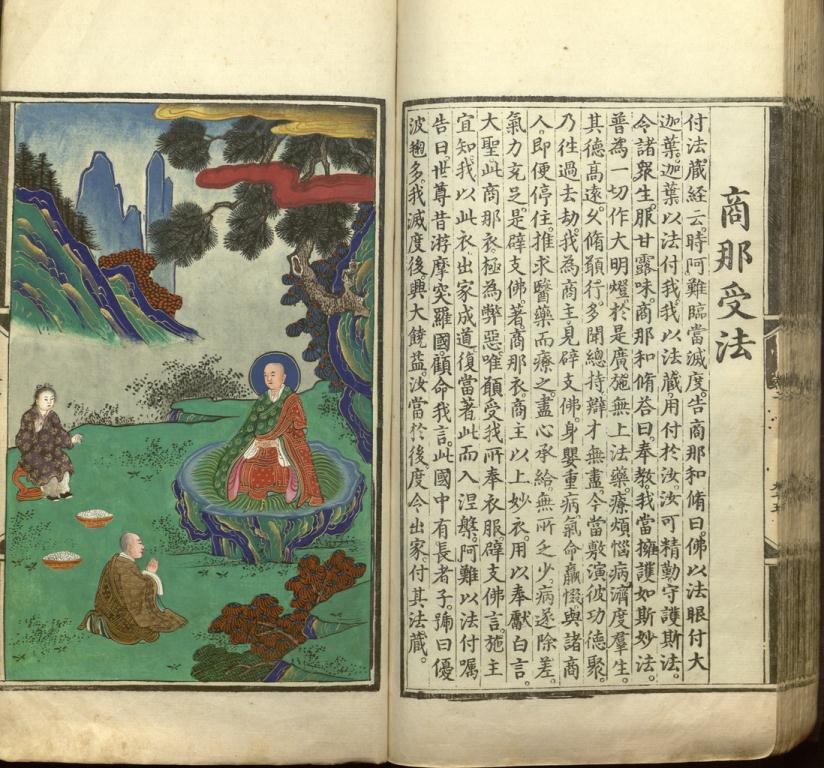 商那受法
付法藏経云。時阿難臨當滅度。告商那和脩曰。佛以法眼付大
迦葉。迦葉以法付我。我以法藏。用付於汝。汝可精勤守護斯法。
令諸衆生。服甘露味。商那和脩荅曰。奉教。我當擁護如斯妙法。
普為一切作大明燈。於是廣施無上法藥。療煩惱病。濟度羣生。
其德髙遠。久脩願行。多聞總持。辯才無盡。今當敷演彼功德聚。
乃徃過去劫。我為商主。見辟支佛。身嬰重病。氣命羸惙。與諸商
人。即便停住。推求醫藥而療之。盡心承給。無所乏少。病遂除差。
氣力充足。是辟支佛。著商那衣。商主以上妙衣。用以奉獻白言。
大聖此商那衣。極為弊惡。唯願受我所奉衣服。辟支佛言。施主
宜知。我以此衣。出家成道。復當著此而入涅槃。阿難以法付嘱
告曰。世尊昔游摩突羅國。顧命我言。此國中有長者子。號曰優
波毱多。我滅度後。興大饒益。汝當於後。度令出家。付其法藏。